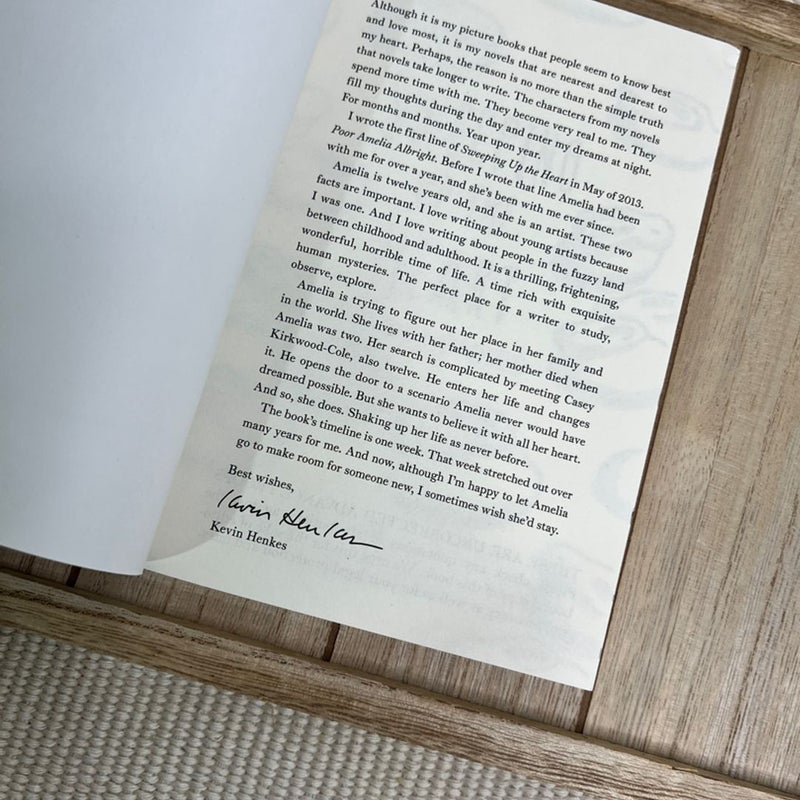 Although it is my picture books that people seem to know best
and love most, it is my novels that are nearest and dearest to
my heart. Perhaps, the reason is no more than the simple truth
that novels take longer to write. The characters from my novels
spend more time with me. They become very real to me. They
fill my thoughts during the day and enter my dreams at night.
For months and months. Year upon year.
I wrote the first line of Sweeping Up the Heart in May of 2013.
Poor Amelia Albright. Before I wrote that line Amelia had been
with me for over a year, and she's been with me ever since.
Amelia is twelve years old, and she is an artist. These two
facts are important. I love writing about young artists because
I was one. And I love writing about people in the fuzzy land
between childhood and adulthood. It is a thrilling, frightening,
wonderful, horrible time of life. A time rich with exquisite
human mysteries. The perfect place for a writer to study,
observe, explore.
Amelia is trying to figure out her place in her family and
in the world. She lives with her father; her mother died when
Amelia was two. Her search is complicated by meeting Casey
Kirkwood-Cole, also twelve. He enters her life and changes
it. He opens the door to a scenario Amelia never would have
dreamed possible. But she wants to believe it with all her heart.
And so, she does. Shaking up her life as never before.
The book's timeline is one week. That week stretched out over
many years for me. And now, although I'm happy to let Amelia
go to make room for someone new, I sometimes wish she'd stay.
Best wishes,
Kevin Henkes
Kevin Henkes